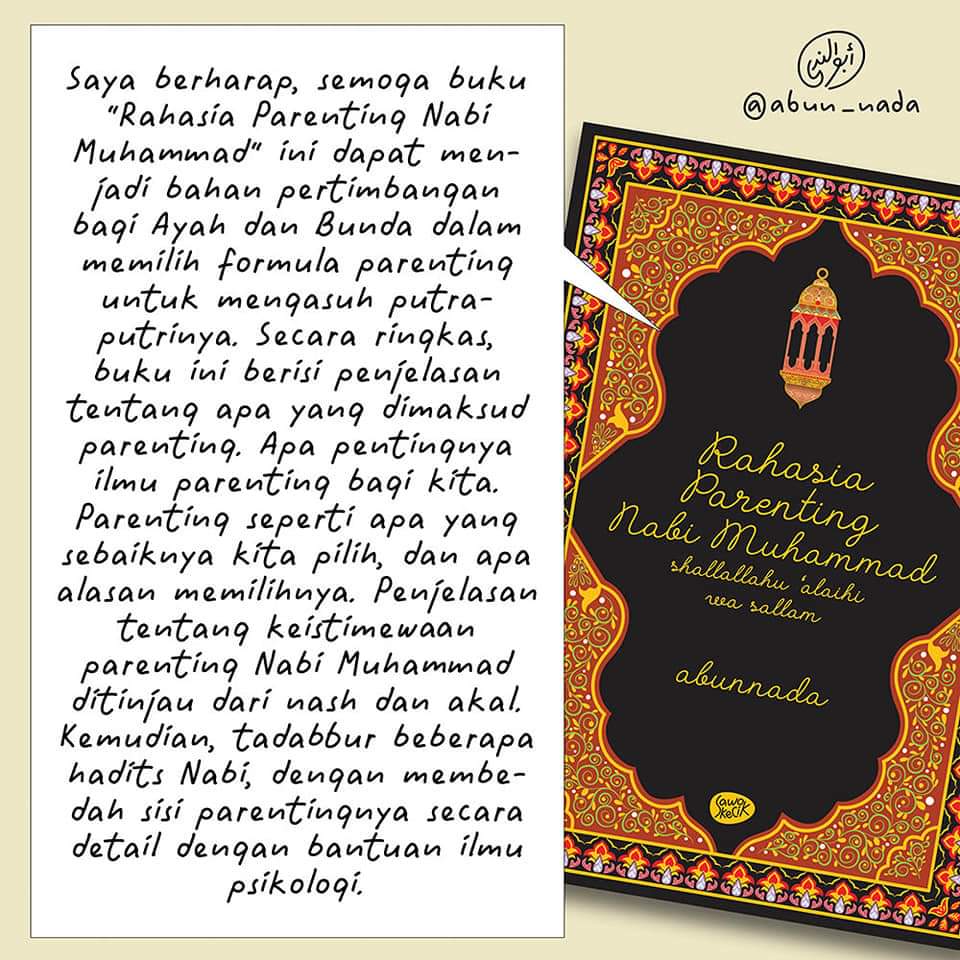 Saya berharap, semoga buku
"Rahasia Parenting Nabi
Muhammad" ini dapat men-
jadi bahan pertimbangan
bagi Ayah dan Bunda dalam
memilih formula parenting
untuk mengasuh putra-
putrinya. Secara ringkas,
buku ini berisi penjelasan
tentang apa yang dimaksud
parenting. Apa pentingnya
ilmu parenting bagi kita.
Parenting seperti apa yang
sebaiknya kita pilih, dan apa
alasan memilihnya. Penjelasan
tentang keistimewaan
parenting Nabi Muhammad
ditinjau dari nash dan akal.
Kemudian, tadabbur beberapa
hadits Nabi, dengan membe-
dah sisi parentingnya secara
detail dengan bantuan ilmu
psikologi.
أبو الندى
@abun_nada
Rahasia
Parenting
Nabi Muhammad
shallallahu 'alaihi
wa sallam
abunnada
sawo
kecik